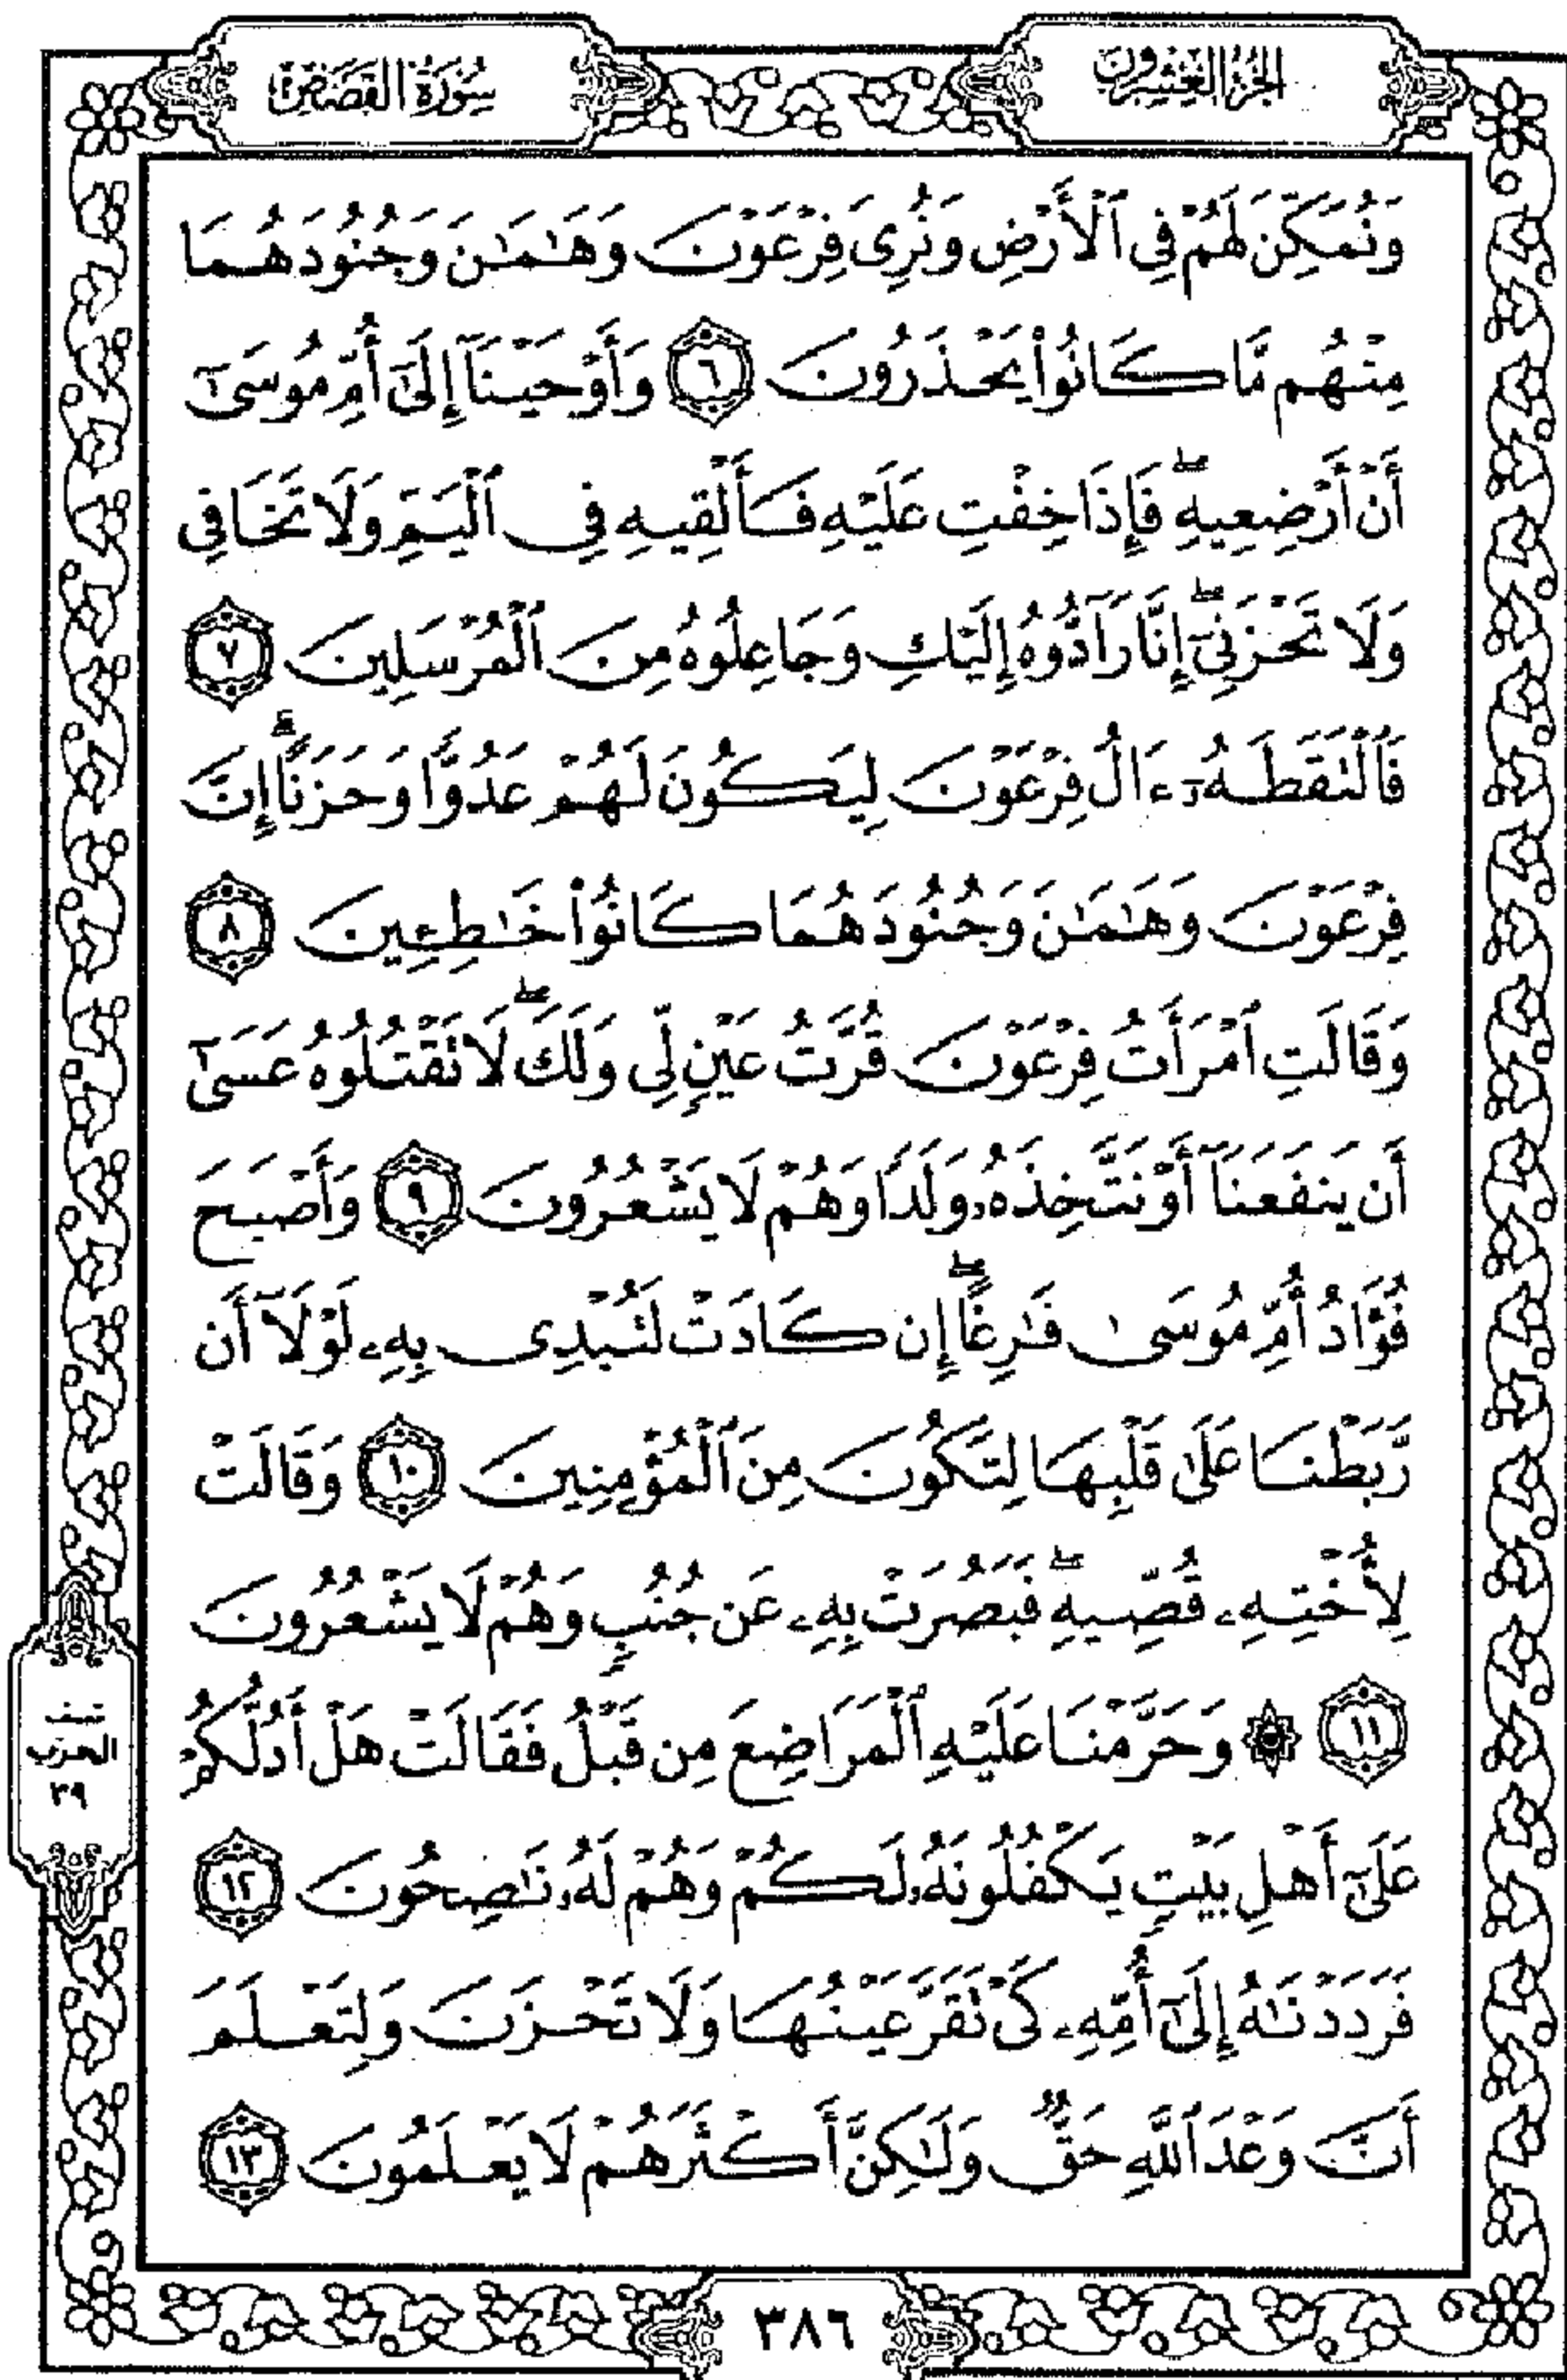 الجزء العشرون
سورة القصص
وَنُمَكِّنَ لَهُمْ فِي ٱلْأَرْضِ وَنُرِىَ فِرْعَوْنَ وَهَٰمَٰنَ وَجُنُودَهُمَا
مِنْهُم مَّا كَانُوا۟ يَحْذَرُونَ ٦ وَأَوْحَيْنَآ إِلَىٰٓ أُمِّ مُوسَىٰٓ
أَنْ أَرْضِعِيهِ ۖ فَإِذَا خِفْتِ عَلَيْهِ فَأَلْقِيهِ فِى ٱلْيَمِّ وَلَا تَخَافِى
وَلَا تَحْزَنِىٓ ۖ إِنَّا رَآدُّوهُ إِلَيْكِ وَجَاعِلُوهُ مِنَ ٱلْمُرْسَلِينَ ٧
فَٱلْتَقَطَهُۥٓ ءَالُ فِرْعَوْنَ لِيَكُونَ لَهُمْ عَدُوًّا وَحَزَنًا ۗ إِنَّ
فِرْعَوْنَ وَهَٰمَٰنَ وَجُنُودَهُمَا كَانُوا۟ خَٰطِـِٔينَ ٨
وَقَالَتِ ٱمْرَأَتُ فِرْعَوْنَ قُرَّتُ عَيْنٍ لِّى وَلَكَ ۖ لَا تَقْتُلُوهُ عَسَىٰٓ
أَن يَنفَعَنَآ أَوْ نَتَّخِذَهُۥ وَلَدًا وَهُمْ لَا يَشْعُرُونَ ٩ وَأَصْبَحَ
فُؤَادُ أُمِّ مُوسَىٰ فَٰرِغًا ۖ إِن كَادَتْ لَتُبْدِى بِهِۦ لَوْلَآ أَن
رَّبَطْنَا عَلَىٰ قَلْبِهَا لِتَكُونَ مِنَ ٱلْمُؤْمِنِينَ ١٠ وَقَالَتْ
لِأُخْتِهِۦ قُصِّيهِ ۖ فَبَصُرَتْ بِهِۦ عَن جُنُبٍ وَهُمْ لَا يَشْعُرُونَ
١١ ۞ وَحَرَّمْنَا عَلَيْهِ ٱلْمَرَاضِعَ مِن قَبْلُ فَقَالَتْ هَلْ أَدُلُّكُمْ
عَلَىٰٓ أَهْلِ بَيْتٍ يَكْفُلُونَهُۥ لَكُمْ وَهُمْ لَهُۥ نَٰصِحُونَ ١٢
فَرَدَدْنَٰهُ إِلَىٰٓ أُمِّهِۦ كَىْ تَقَرَّ عَيْنُهَا وَلَا تَحْزَنَ وَلِتَعْلَمَ
أَنَّ وَعْدَ ٱللَّهِ حَقٌّ وَلَٰكِنَّ أَكْثَرَهُمْ لَا يَعْلَمُونَ ١٣
نصف
الحزب
٣٩
٣٨٦